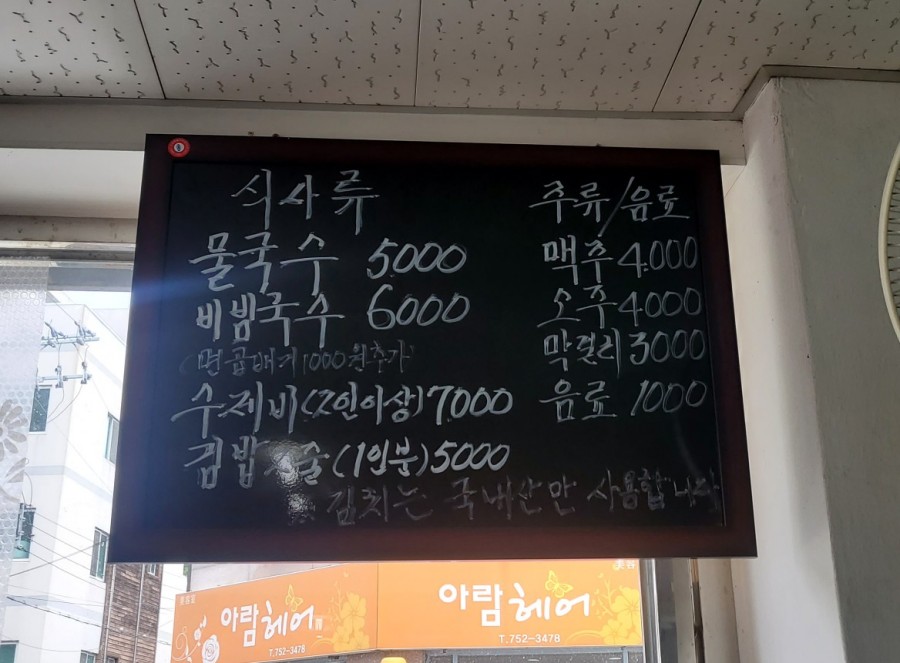 식사류
물국수 5000
비빔국수 6000
(면곱배기 1000원추가)
수제비(2인이상)7000
김밥 (1인분)5000
※ 김치는 국내산만 사용합니다
주류/음료
맥주 4.000
소주 4000
막걸리 3000
음료 1000
아람헤어
T.752-3478
아람헤어
T.752-3478